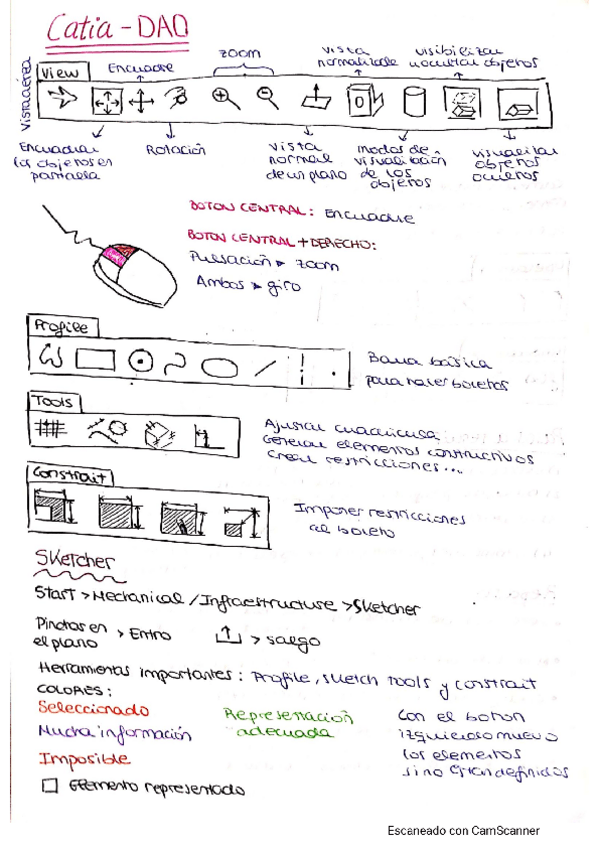 Catia - DAO
View
Vista aérea
Encuadre
zoom
vista
normalizada
visibilizar
u ocultar objetos
Encuadrar
los objetos en
pantalla
Rotación
vista
normal
de un plano
modos de
visualización
de los
objetos
visualizar
objetos
ocultos
BOTON CENTRAL: Encuadre
BOTON CENTRAL + DERECHO:
Pulsación > zoom
Ambos > giro
Profile
Barra básica
para hacer bocetos
Tools
Ajustar cuadrícula
Generar elementos constructivos
Crear restricciones...
Constrait
Imponer restricciones
al boceto
Sketcher
Start > Mechanical / Infraestructure > Sketcher
Pinchas en
el plano
> Entro
> salgo
Herramientas importantes: Profile, Sketch Tools y constrait
COLORES:
Seleccionado
Mucha información
Imposible
Elemento representado
Representación
adecuada
Con el boton
izquierdo muevo
los elementos
sino están definidos
Escaneado con CamScanner